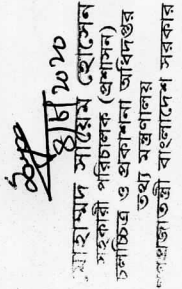 ৪/৭/২০২০
মোহাম্মদ সায়েম হোসেন
সহকারী পরিচালক (প্রশাসন)
চলচ্চিত্র ও প্রকাশনা অধিদপ্তর
তথ্য মন্ত্রণালয়
গণপ্রজাতন্ত্রী বাংলাদেশ সরকার